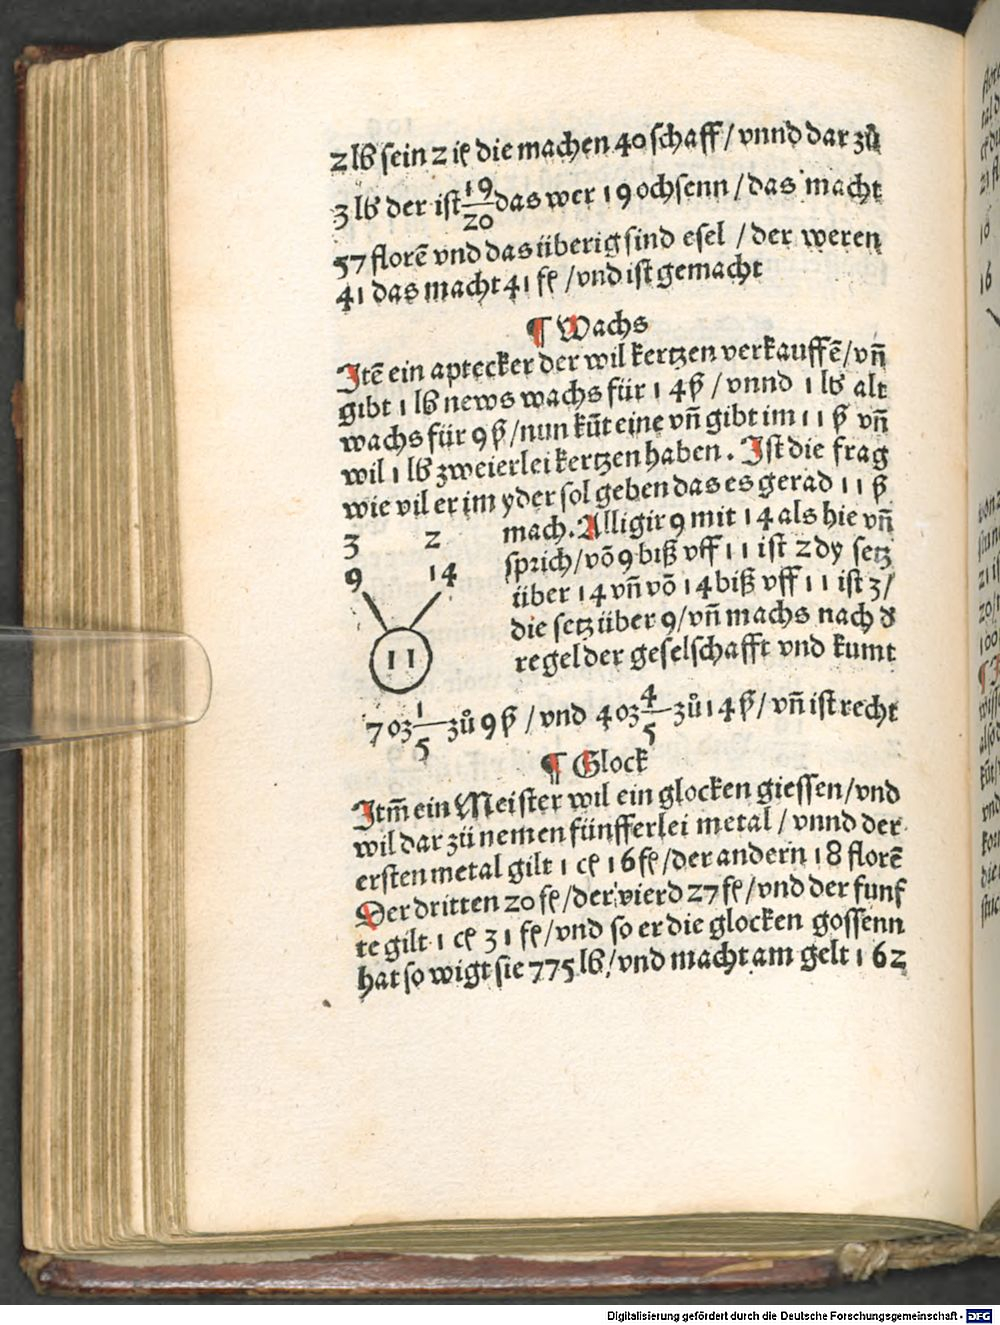 2 lb sein 2 ꝯ die machen 40 schaff / vnnd dar zů
3 lb der ist 19/20 das wer 19 ochsenn / das macht
57 florē vnd das überig sind esel / der weren
41 das macht 41 fl / vnd ist gemacht
¶ Wachs
Itē ein aptecker der wil kertzen verkauffē / vn̄
gibt 1 lb news wachs für 1 4 ß / vnnd 1 lb alt
wachs für 9 ß / nun kūt eine vn̄ gibt im 11 ß vn̄
wil 1 lb zweierlei kertzen haben. Ist die frag
wie vil er im yder sol geben das es gerad 11 ß
mach. Alligir 9 mit 14 als hie vn̄
sprich / vō 9 biß vff 11 ist 2 dy setz
über 14 vn̄ vō 14 biß vff 11 ist 3 /
die setz über 9 / vn̄ machs nach d̄
regel der geselschafft vnd kumt
3 2
9 14
11
7 oz 1/5 zů 9 ß / vnd 4 oz 4/5 zů 14 ß / vn̄ ist recht
¶ Glock
Itm̄ ein Meister wil ein glocken giessen / vnd
wil dar zů nemen fünfferlei metal / vnnd der
ersten metal gilt 1 cꝫ 16 fl / der andern 18 florē
Der dritten 20 fl / der vierd 27 fl / vnd der funf
te gilt 1 cꝫ 31 fl / vnd so er die glocken gossenn
hat so wigt sie 775 lb / vnd macht am gelt 162
Digitalisierung gefördert durch die Deutsche Forschungsgemeinschaft - DFG